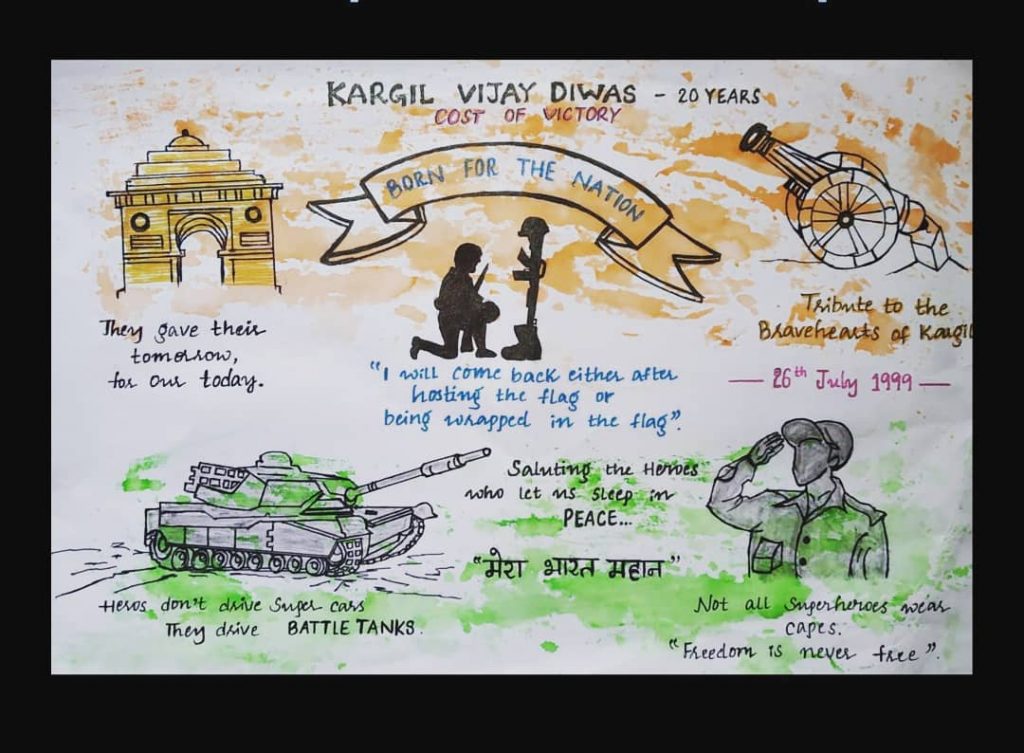 KARGIL VIJAY DIWAS - 20 YEARS
COST OF VICTORY
BORN FOR THE NATION
They gave their
tomorrow,
for our today.
"I will come back either after
hosting the flag or
being wrapped in the flag".
Tribute to the
Bravehearts of Kargil
— 26th July 1999 —
Saluting the Heroes
who let us sleep in
PEACE...
"मेरा भारत महान"
Heros don't drive Super cars
They drive BATTLE TANKS.
Not all superheroes wear
capes.
"Freedom is never free".